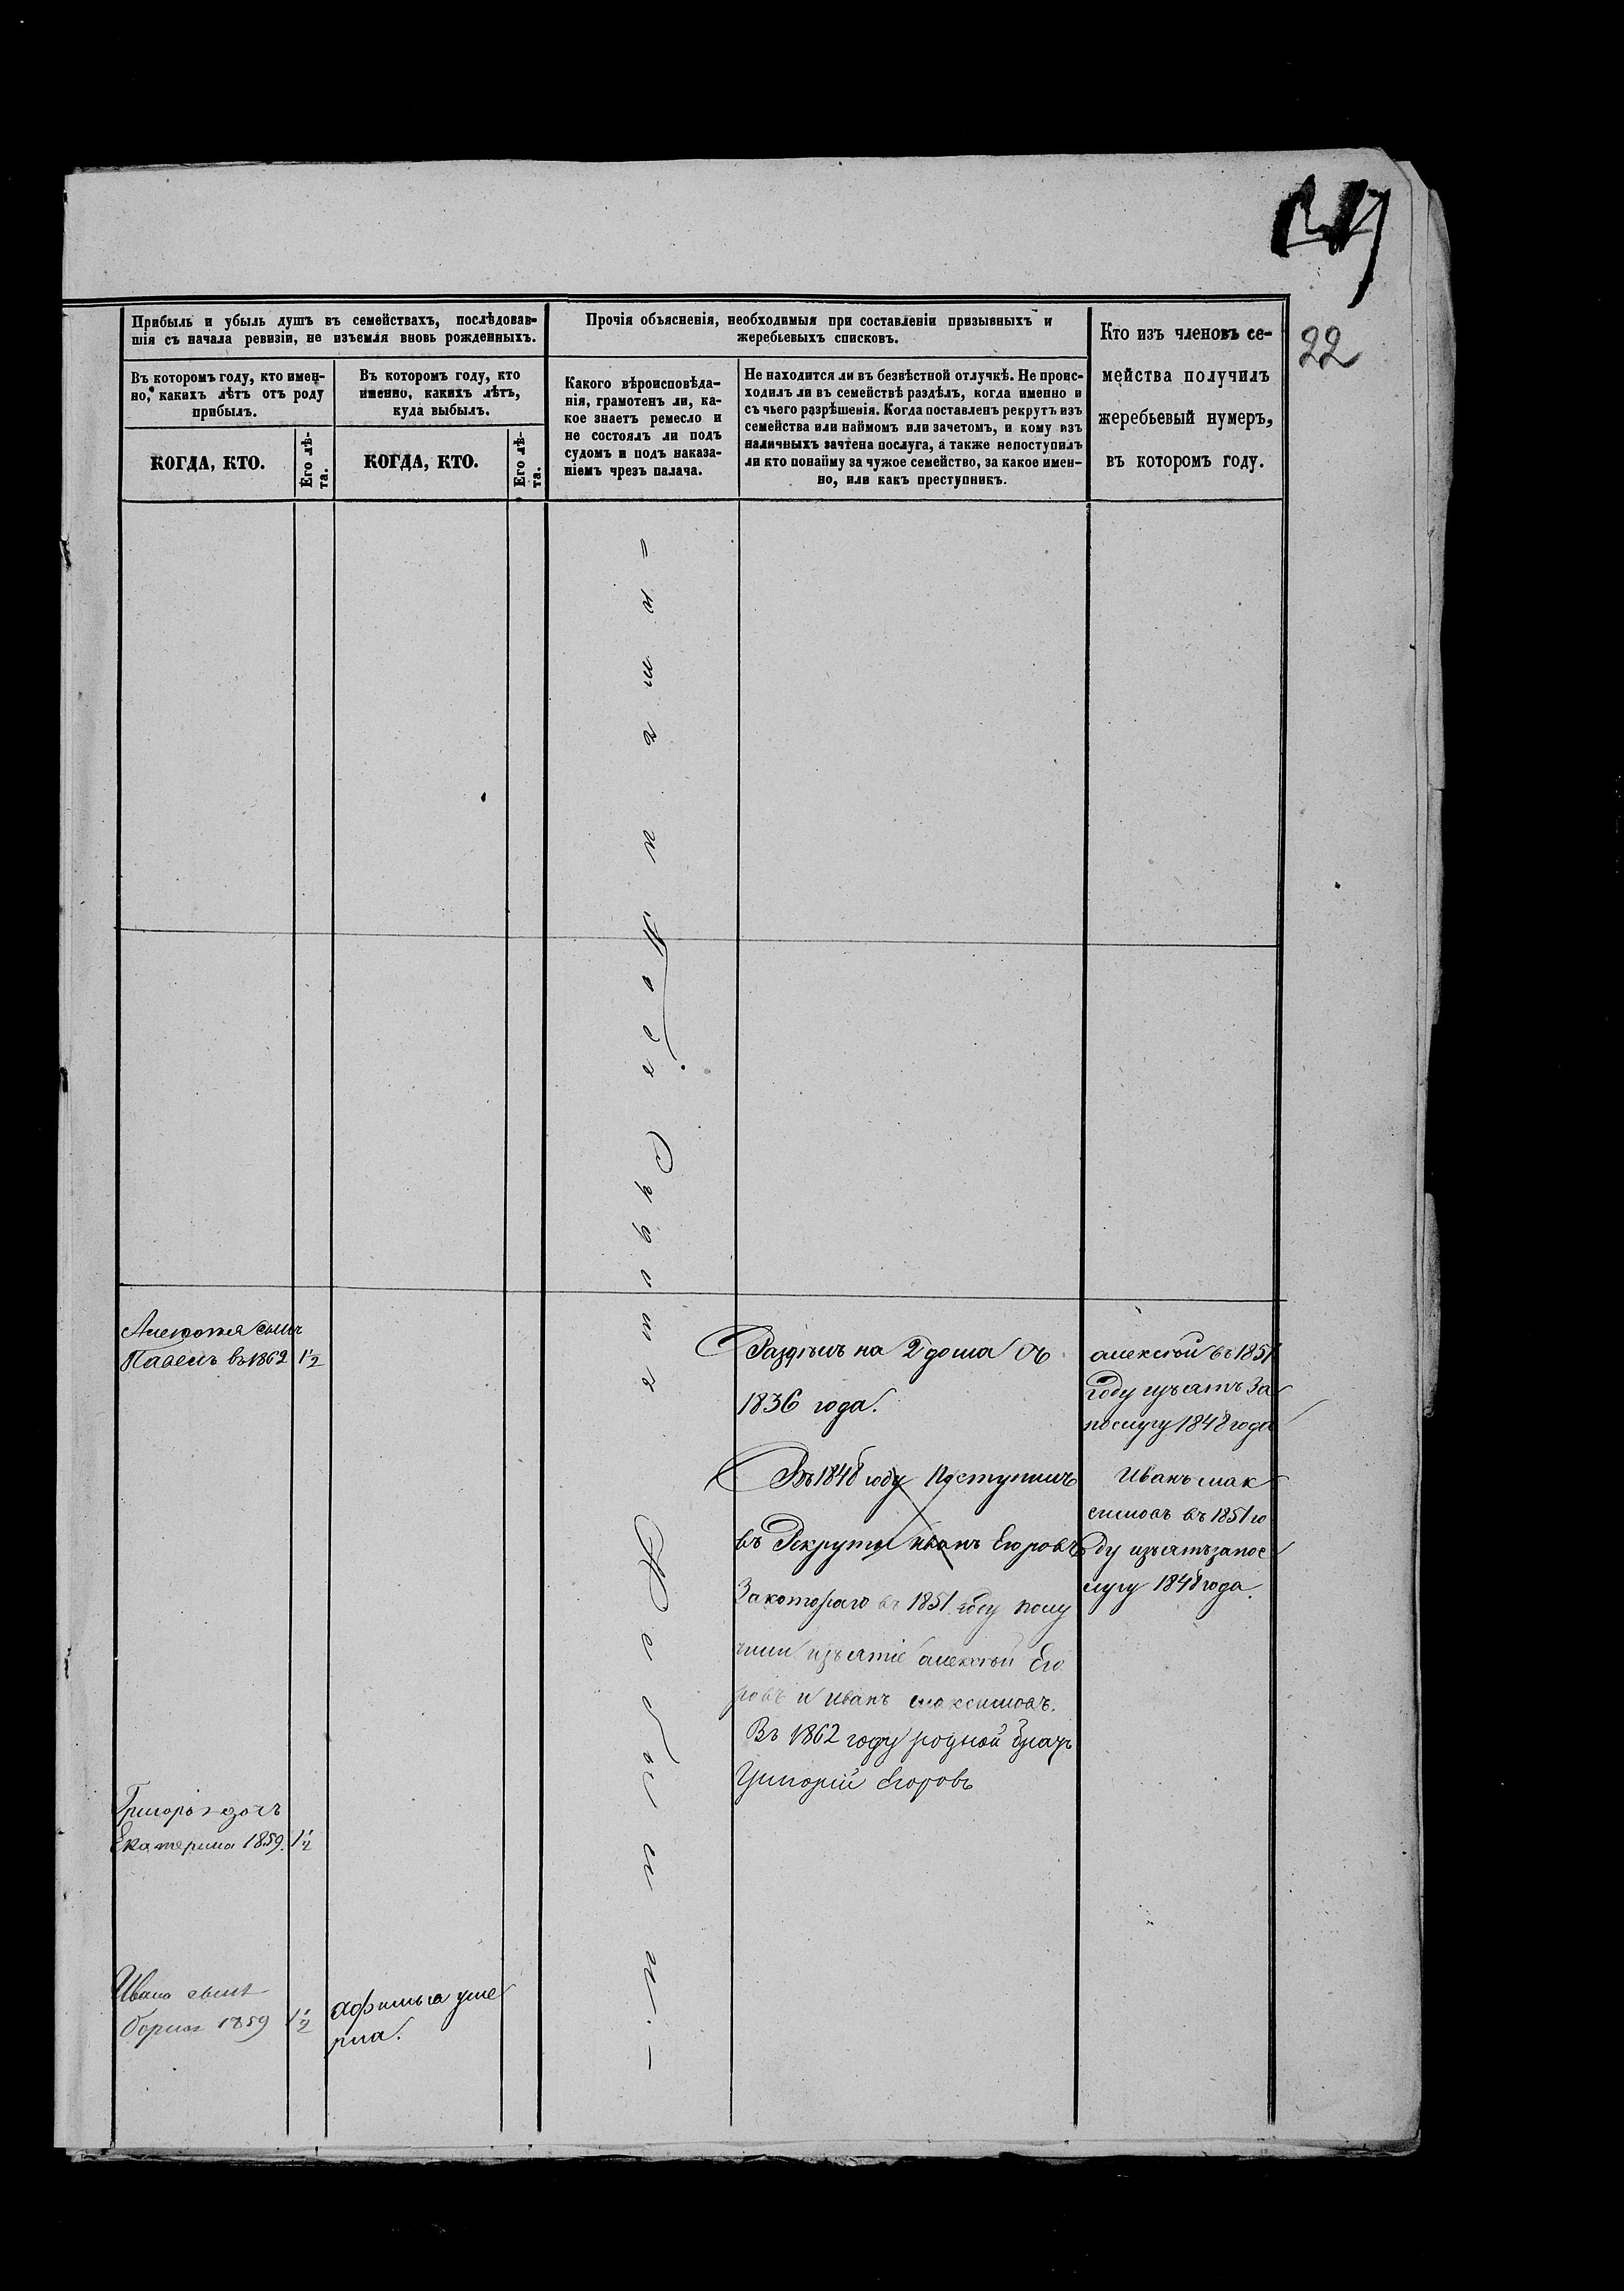 22
Прибыль и убыль душъ въ семействахъ, послѣдовав-
шія съ начала ревизіи, не изъемля вновь рожденныхъ.
Въ которомъ году, кто имен-
но, какихъ лѣтъ отъ роду
прибылъ.
КОГДА, КТО.
Его лѣ-
та.
Въ которомъ году, кто
именно, какихъ лѣтъ,
куда выбылъ.
КОГДА, КТО.
Его лѣ-
та.
Прочія объясненія, необходимыя при составленіи призывныхъ и
жеребьевыхъ списковъ.
Какого вѣроисповѣда-
нія, грамотенъ ли, ка-
кое знаетъ ремесло и
не состоялъ ли подъ
судомъ и подъ наказа-
ніемъ чрезъ палача.
Не находится ли въ безвѣстной отлучкѣ. Не проис-
ходилъ ли въ семействѣ раздѣлъ, когда именно и
съ чьего разрѣшенія. Когда поставленъ рекрутъ изъ
семейства или наймомъ или зачетомъ, и кому изъ
наличныхъ зачтена послуга, а также непоступилъ
ли кто понайму за чужое семейство, за какое имен-
но, или какъ преступникъ.
Кто изъ членовъ се-
мейства получилъ
жеребьевый нумеръ,
въ которомъ году.
Алексѣя сынъ
Павелъ въ 1862 1½
Григорья дочь
Екатерина 1859. 1½
Ивана сынъ
борис 1859 1½
афимья уме
рла.
Раздѣлъ на 2 дома съ
1836 года.
Въ 1848 году Поступилъ
въ Рекруты иванъ Егоровъ
За котораго въ 1851 году полу
чили изъятіе алексѣй Его
ровъ и иванъ максимовъ.
Въ 1862 году родной братъ
Григорій Егоровъ
алексѣй въ 1851
году изъятъ За
послугу 1848 года
Иванъ мак
симовъ въ 1851 го
ду изъятъ запос
лугу 1848 года.